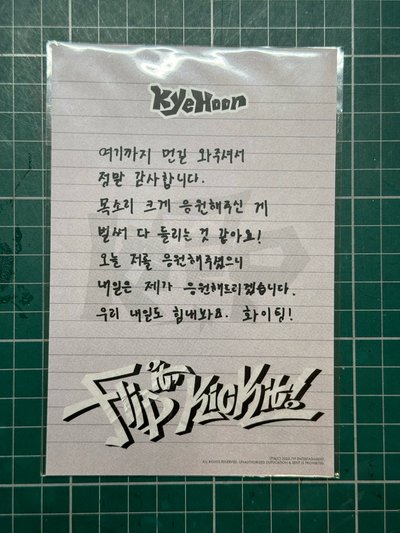 KyeHoon
여기까지 먼길 와주셔서
정말 감사합니다.
목소리 크게 응원해주신 게
벌써 다 들리는 것 같아요!
오늘 저를 응원해주셨으니
내일은 제가 응원해드리겠습니다.
우리 내일도 힘내봐요. 화이팅!
Flip it, Kick it!
ALL RIGHTS RESERVED. UNAUTHORIZED DUPLICATION & RENT IS PROHIBITED.